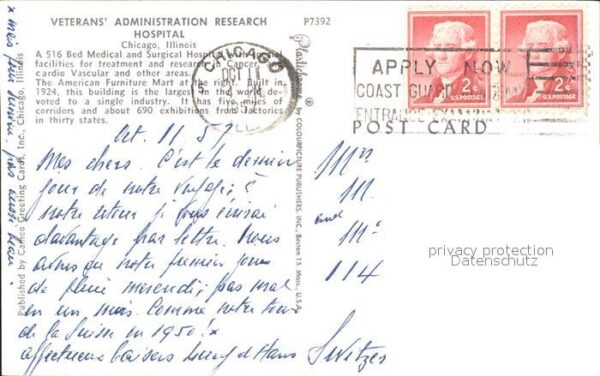 VETERANS' ADMINISTRATION RESEARCH
HOSPITAL
Chicago, Illinois
A 516 Bed Medical and Surgical Hospital with
facilities for treatment and research in Cancer,
cardio Vascular and other areas.
The American Furniture Mart at the right. Built in
1924, this building is the largest in the world de-
voted to a single industry. It has five miles of
corridors and about 690 exhibitions from factories
in thirty states.
P7392
CHICAGO
OCT 11
ILL
APPLY NOW
COAST GUARD
ENTRANCE
2¢
U.S. POSTAGE
2¢
U.S. POSTAGE
POST CARD
Published by Cameo Greeting Cards, Inc., Chicago, Illinois
Plastichrome ®
by COLOURPICTURE PUBLISHERS, INC., Boston 15, Mass., U.S.A.
Oct. 11. 57
Mes chers. C'est le dernier
jour de notre voyage, à
notre retour je vous
davantage par lettre. Nous
avons eu notre premier jour
de pluie mercredi, pas mal
en un mois. Comme notre tour
de la Suisse en 1950! x
affectueux baisers Hans
x mais plus pas aussi beau!
Mrs
M.
and
114
Switzer
privacy protection
Datenschutz